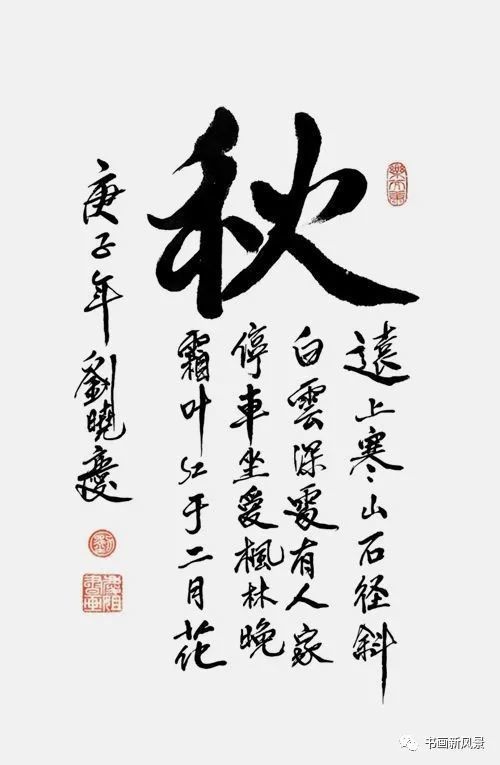 秋
遠上寒山石径斜
白雲深處有人家
停車坐愛楓林晚
霜叶红于二月花
庚子年劉曉慶
书画新风景